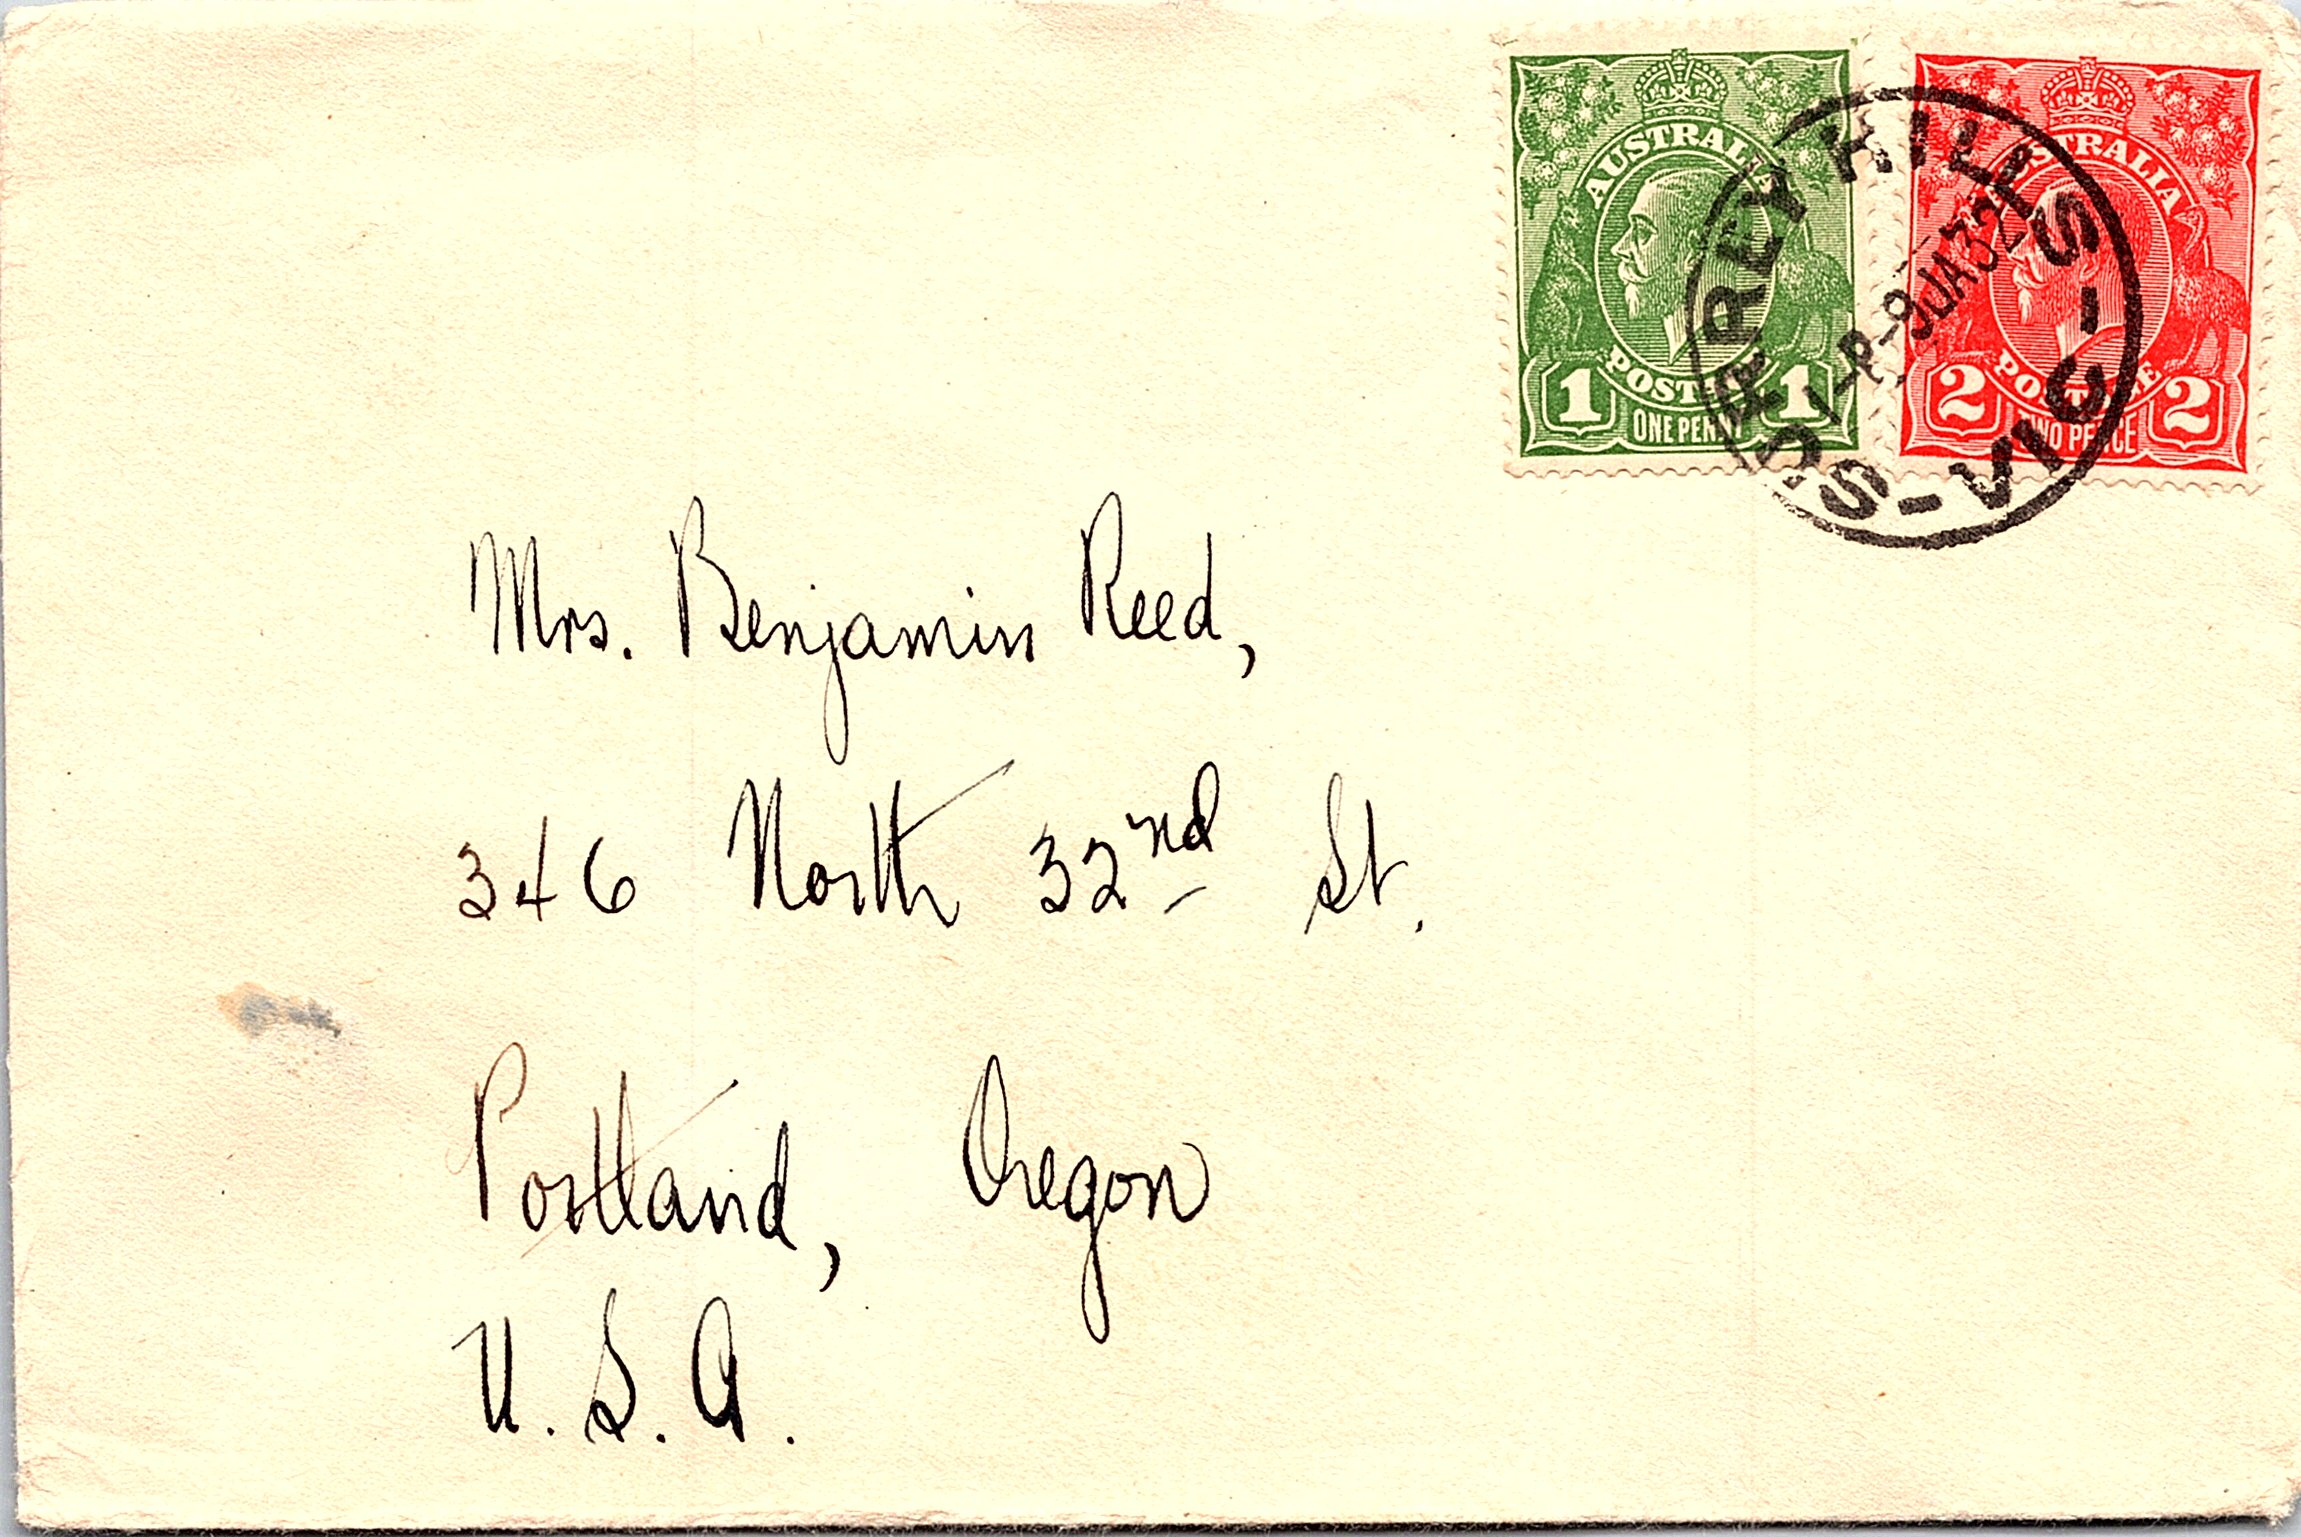 AUSTRALIA
POSTAGE
1 1
ONE PENNY
AUSTRALIA
POSTAGE
2 2
TWO PENCE
SURREY HILLS
S - VIC -
9 JA 32
Mrs. Benjamin Reed,
346 North 32nd St.
Portland, Oregon
U. S. A.